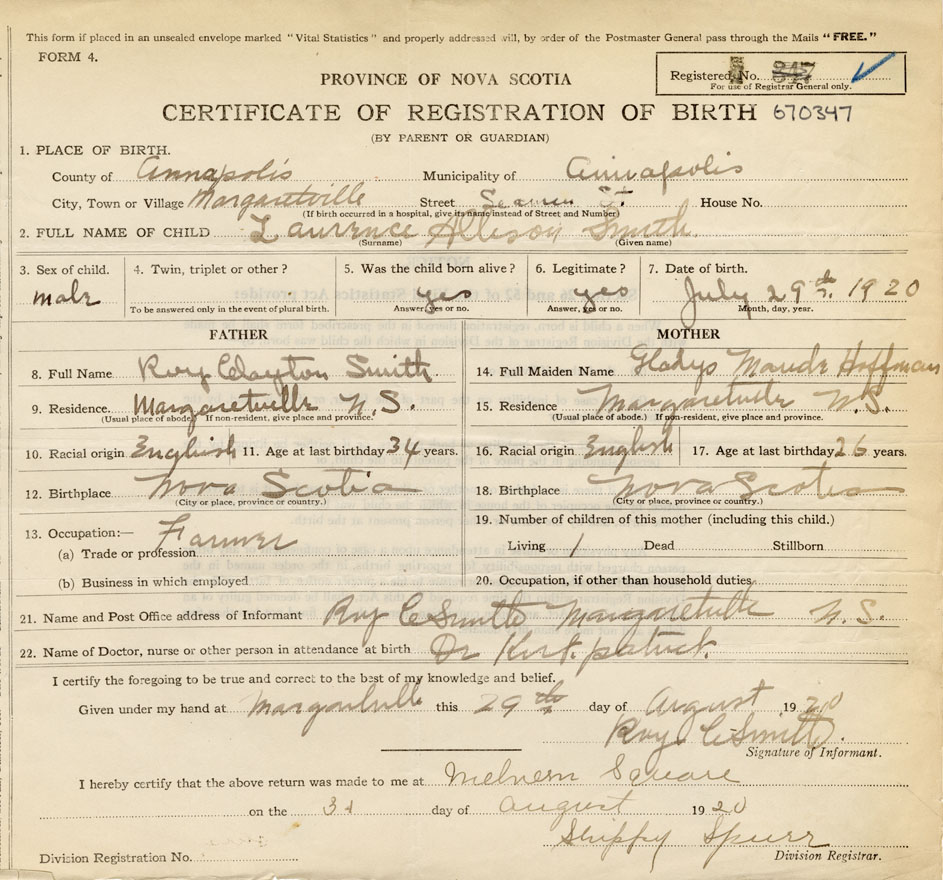 This form if placed in an unsealed envelope marked "Vital Statistics" and properly addressed will, by order of the Postmaster General pass through the Mails "FREE."
FORM 4.
Registered No. 347
For use of Registrar General only.
PROVINCE OF NOVA SCOTIA
CERTIFICATE OF REGISTRATION OF BIRTH 670347
(BY PARENT OR GUARDIAN)
1. PLACE OF BIRTH.
County of Annapolis Municipality of Annapolis
City, Town or Village Margaretville Street Seaman St. House No.
(If birth occurred in a hospital, give its name instead of Street and Number)
2. FULL NAME OF CHILD Lawrence Allison Smith
(Surname) (Given name)
3. Sex of child. 4. Twin, triplet or other? 5. Was the child born alive? 6. Legitimate? 7. Date of birth.
male yes yes July 29th. 1920
To be answered only in the event of plural birth. Answer, yes or no. Answer, yes or no. Month, day, year.
FATHER MOTHER
8. Full Name Roy Clayton Smith 14. Full Maiden Name Gladys Maude Hoffman
9. Residence. Margaretville N.S. 15. Residence Margaretville N.S.
(Usual place of abode.) If non-resident, give place and province. (Usual place of abode.) If non-resident, give place and province.
10. Racial origin English 11. Age at last birthday 34 years. 16. Racial origin English 17. Age at last birthday 26 years.
12. Birthplace Nova Scotia 18. Birthplace Nova Scotia
(City or place, province or country.) (City or place, province or country.)
13. Occupation:— Farmer 19. Number of children of this mother (including this child.)
(a) Trade or profession Living 1 Dead Stillborn
(b) Business in which employed 20. Occupation, if other than household duties
21. Name and Post Office address of Informant Roy C Smith Margaretville N.S.
22. Name of Doctor, nurse or other person in attendance at birth Dr Kirkpatrick.
I certify the foregoing to be true and correct to the best of my knowledge and belief.
Given under my hand at Margaretville this 29th day of August 1920
Roy C Smith.
Signature of Informant.
I hereby certify that the above return was made to me at Melvern Square
on the 31 day of August 1920
Shippy Spurr
Division Registration No. Division Registrar.